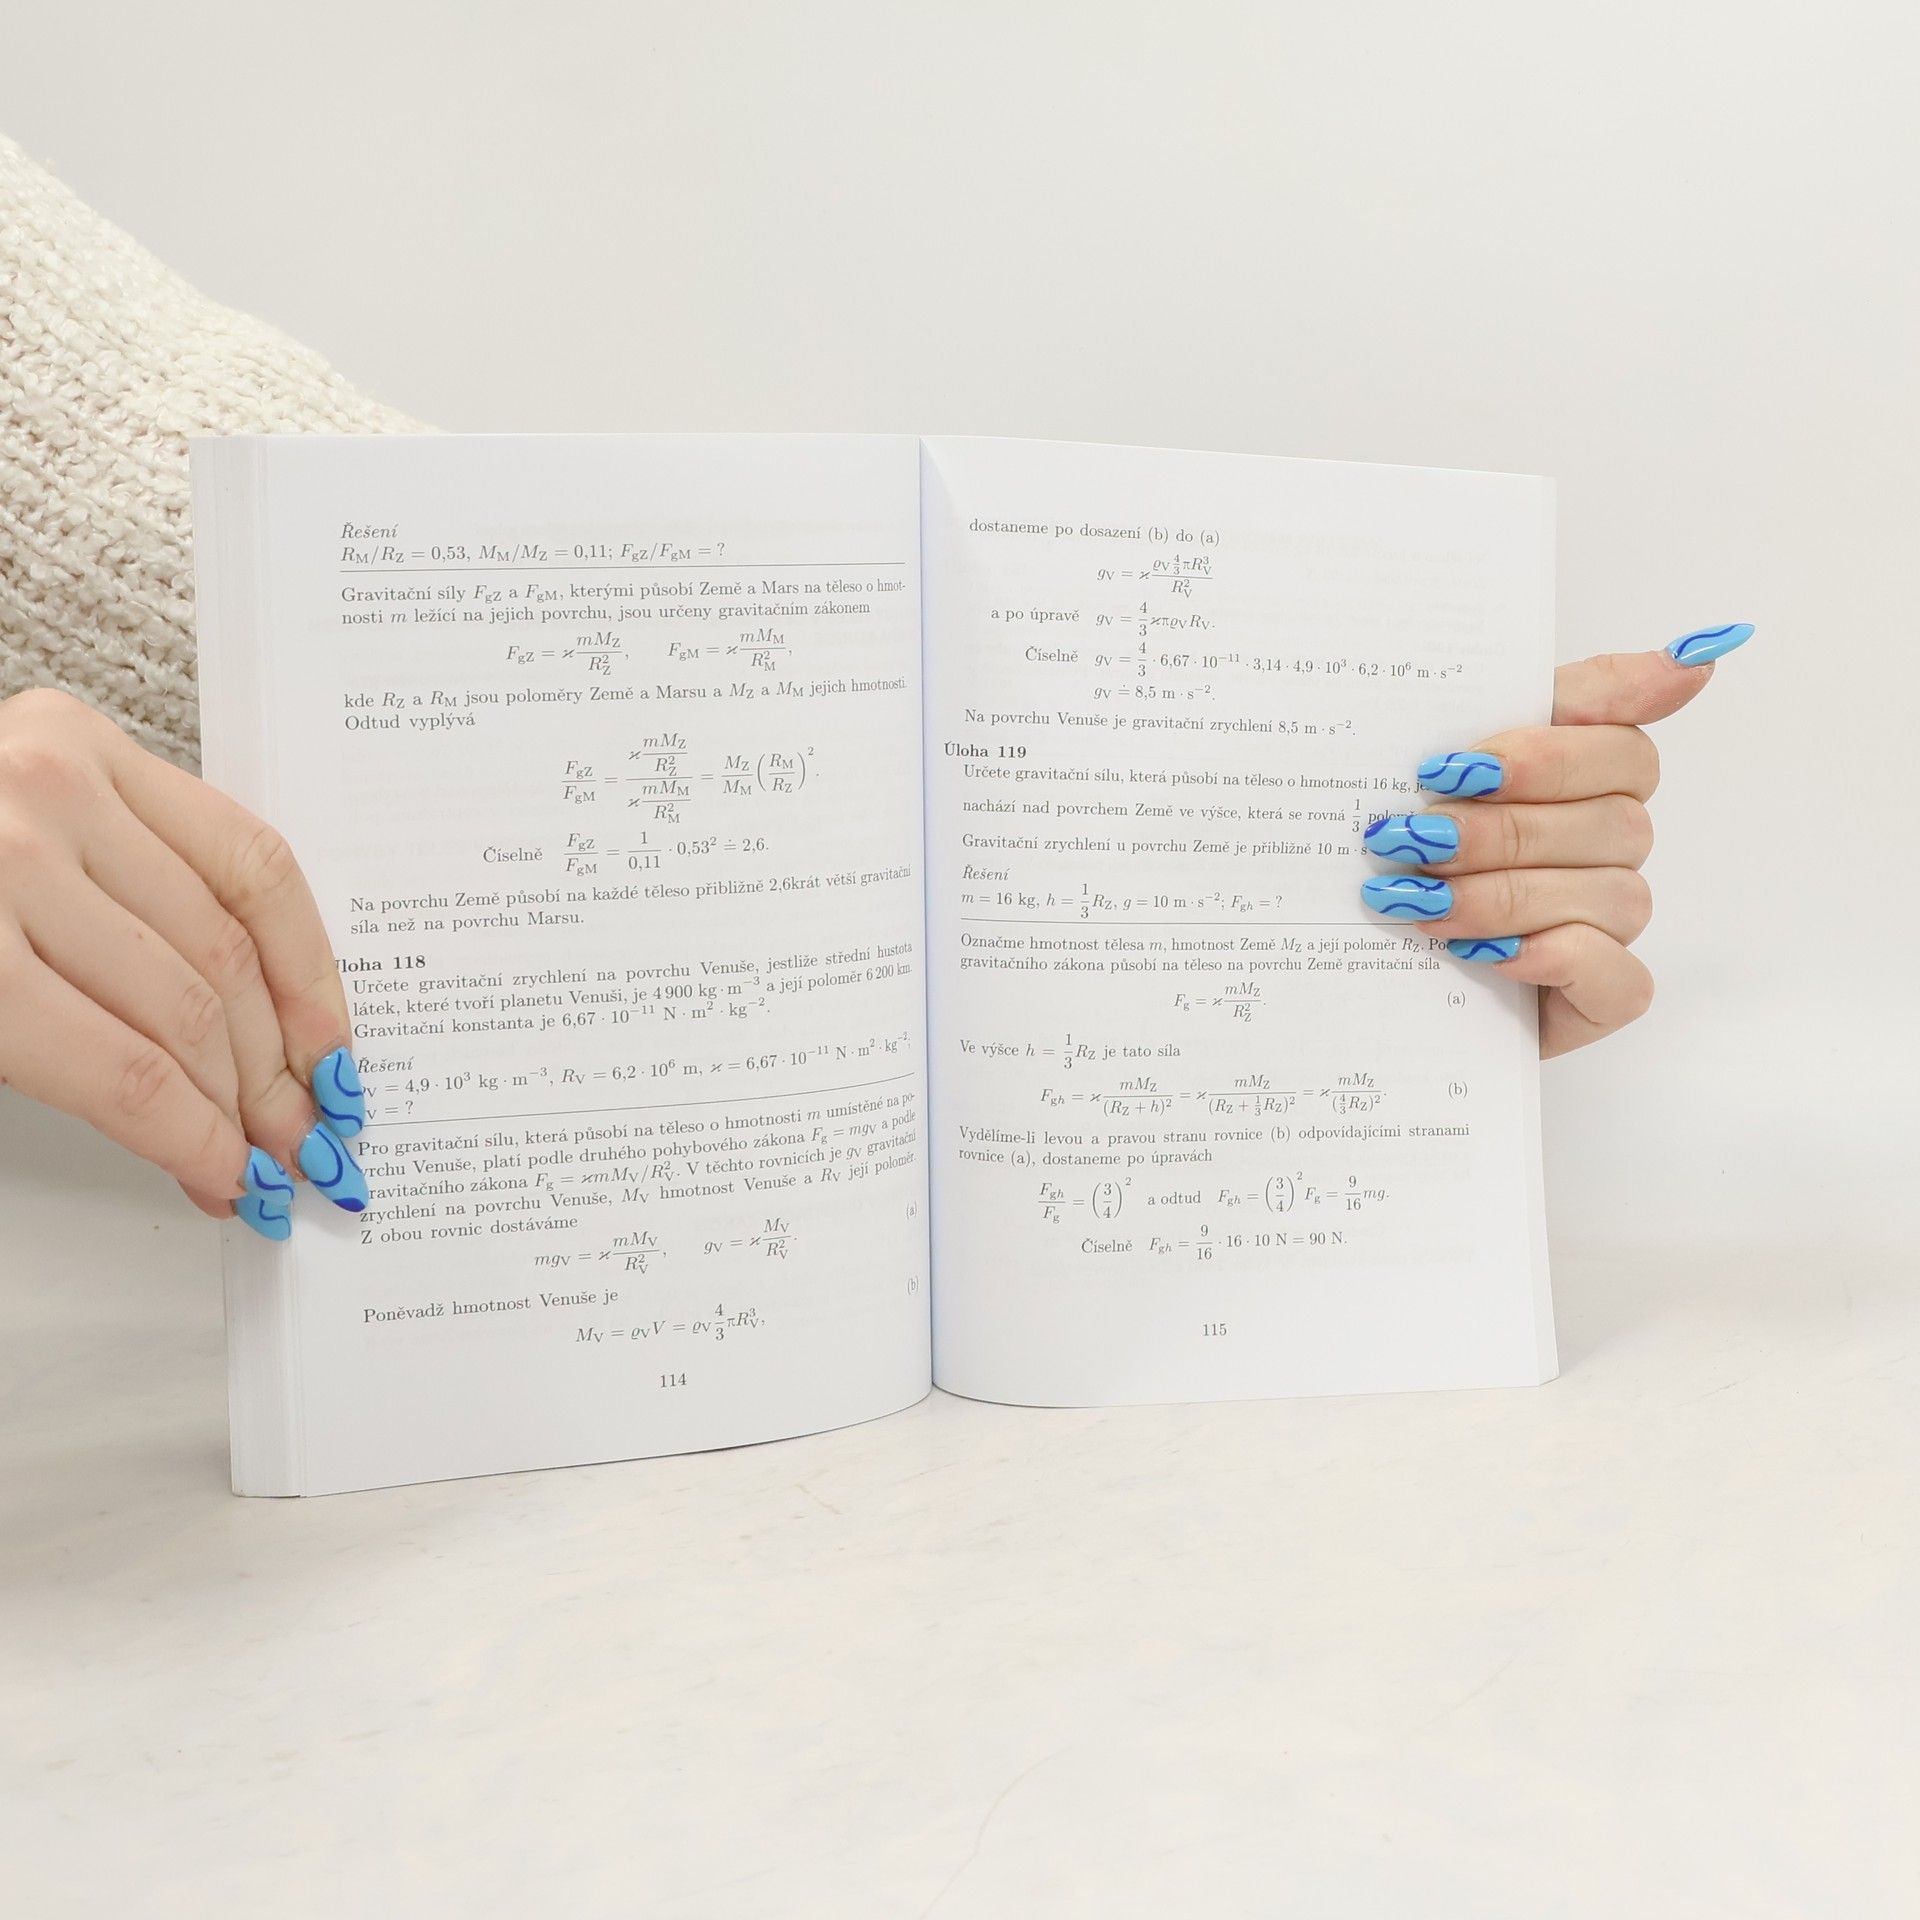 Řešení
R_M/R_Z = 0,53, M_M/M_Z = 0,11; F_gZ/F_gM = ?
Gravitační síly F_gZ a F_gM, kterými působí Země a Mars na těleso o hmot-
nosti m ležící na jejich povrchu, jsou určeny gravitačním zákonem
F_gZ = ϰ mM_Z/R_Z², F_gM = ϰ mM_M/R_M²,
kde R_Z a R_M jsou poloměry Země a Marsu a M_Z a M_M jejich hmotnosti.
Odtud vyplývá
F_gZ/F_gM = (ϰ mM_Z/R_Z²)/(ϰ mM_M/R_M²) = M_Z/M_M (R_M/R_Z)².
Číselně F_gZ/F_gM = 1/0,11 · 0,53² ≐ 2,6.
Na povrchu Země působí na každé těleso přibližně 2,6krát větší gravitační
síla než na povrchu Marsu.
loha 118
Určete gravitační zrychlení na povrchu Venuše, jestliže střední hustota
látek, které tvoří planetu Venuši, je 4 900 kg · m⁻³ a její poloměr 6 200 km.
Gravitační konstanta je 6,67 · 10⁻¹¹ N · m² · kg⁻².
Řešení
V = 4,9 · 10³ kg · m⁻³, R_V = 6,2 · 10⁶ m, ϰ = 6,67 · 10⁻¹¹ N · m² · kg⁻²;
V = ?
Pro gravitační sílu, která působí na těleso o hmotnosti m umístěné na po-
vrchu Venuše, platí podle druhého pohybového zákona F_g = mg_V a podle
ravitačního zákona F_g = ϰmM_V/R_V². V těchto rovnicích je g_V gravitační
zrychlení na povrchu Venuše, M_V hmotnost Venuše a R_V její poloměr.
Z obou rovnic dostáváme
mg_V = ϰ mM_V/R_V², g_V = ϰ M_V/R_V². (a)
Poněvadž hmotnost Venuše je
M_V = ϱ_V V = ϱ_V 4/3 πR_V³, (b)
114
dostaneme po dosazení (b) do (a)
g_V = ϰ ϱ_V 4/3 πR_V³/R_V²
a po úpravě g_V = 4/3 ϰπϱ_V R_V.
Číselně g_V = 4/3 · 6,67 · 10⁻¹¹ · 3,14 · 4,9 · 10³ · 6,2 · 10⁶ m · s⁻²
g_V ≐ 8,5 m · s⁻².
Na povrchu Venuše je gravitační zrychlení 8,5 m · s⁻².
Úloha 119
Určete gravitační sílu, která působí na těleso o hmotnosti 16 kg,
nachází nad povrchem Země ve výšce, která se rovná 1/3
Gravitační zrychlení u povrchu Země je přibližně 10 m · s
Řešení
m = 16 kg, h = 1/3 R_Z, g = 10 m · s⁻²; F_gh = ?
Označme hmotnost tělesa m, hmotnost Země M_Z a její poloměr R_Z.
gravitačního zákona působí na těleso na povrchu Země gravitační síla
F_g = ϰ mM_Z/R_Z². (a)
Ve výšce h = 1/3 R_Z je tato síla
F_gh = ϰ mM_Z/(R_Z + h)² = ϰ mM_Z/(R_Z + 1/3 R_Z)² = ϰ mM_Z/(4/3 R_Z)². (b)
Vydělíme-li levou a pravou stranu rovnice (b) odpovídajícími stranami
rovnice (a), dostaneme po úpravách
F_gh/F_g = (3/4)² a odtud F_gh = (3/4)² F_g = 9/16 mg.
Číselně F_gh = 9/16 · 16 · 10 N = 90 N.
115